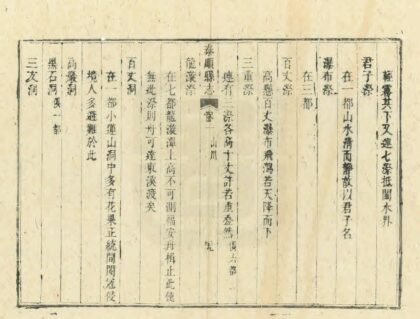 其下又連七漈抵閩水界
君子漈
在一都山水清而靜故以君子名
瀑布漈
在三都
百丈漈
高懸百丈瀑布飛瀉若天降而下
三重漈
連有三漈各高十丈許若重疊然
泰順縣志
山川
龍漈
在七都龍漈潭上高不可測福安舟楫止此使
無此漈則舟可達東溪渡矣
百丈洞
在一都小蓮山洞中多有花果正統間閩冦侵
境人多避難於此
高巖洞
黑石洞 俱一都
三友洞